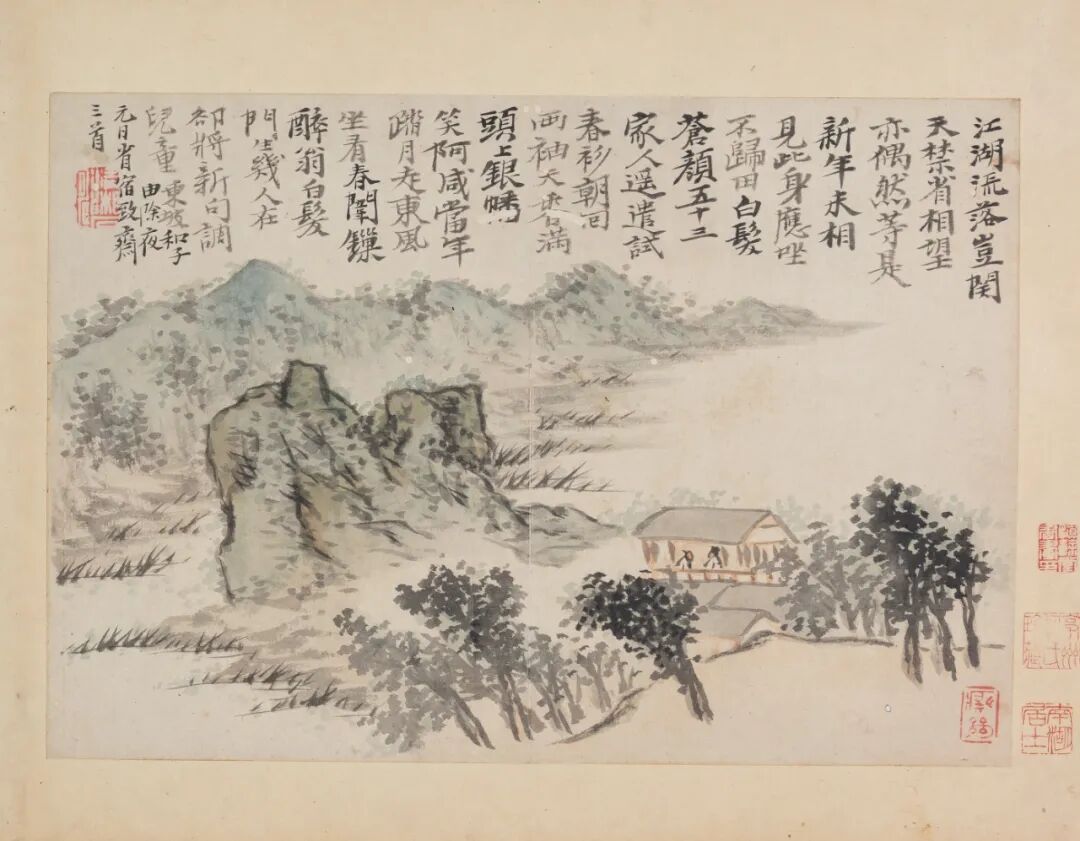 江湖流落豈関
天禁省相望
亦偶然等是
新年未相
見此身應坐
不歸田白髮
蒼顏五十三
家人遥遣試
春衫朝回
両袖天香滿
頭上銀幡
笑阿咸當年
踏月走東風
坐看春闈鏁
醉翁白髮
門生幾人在
却將新句調
兒童東坡和子
由除夜
元日省宿致齋
三首